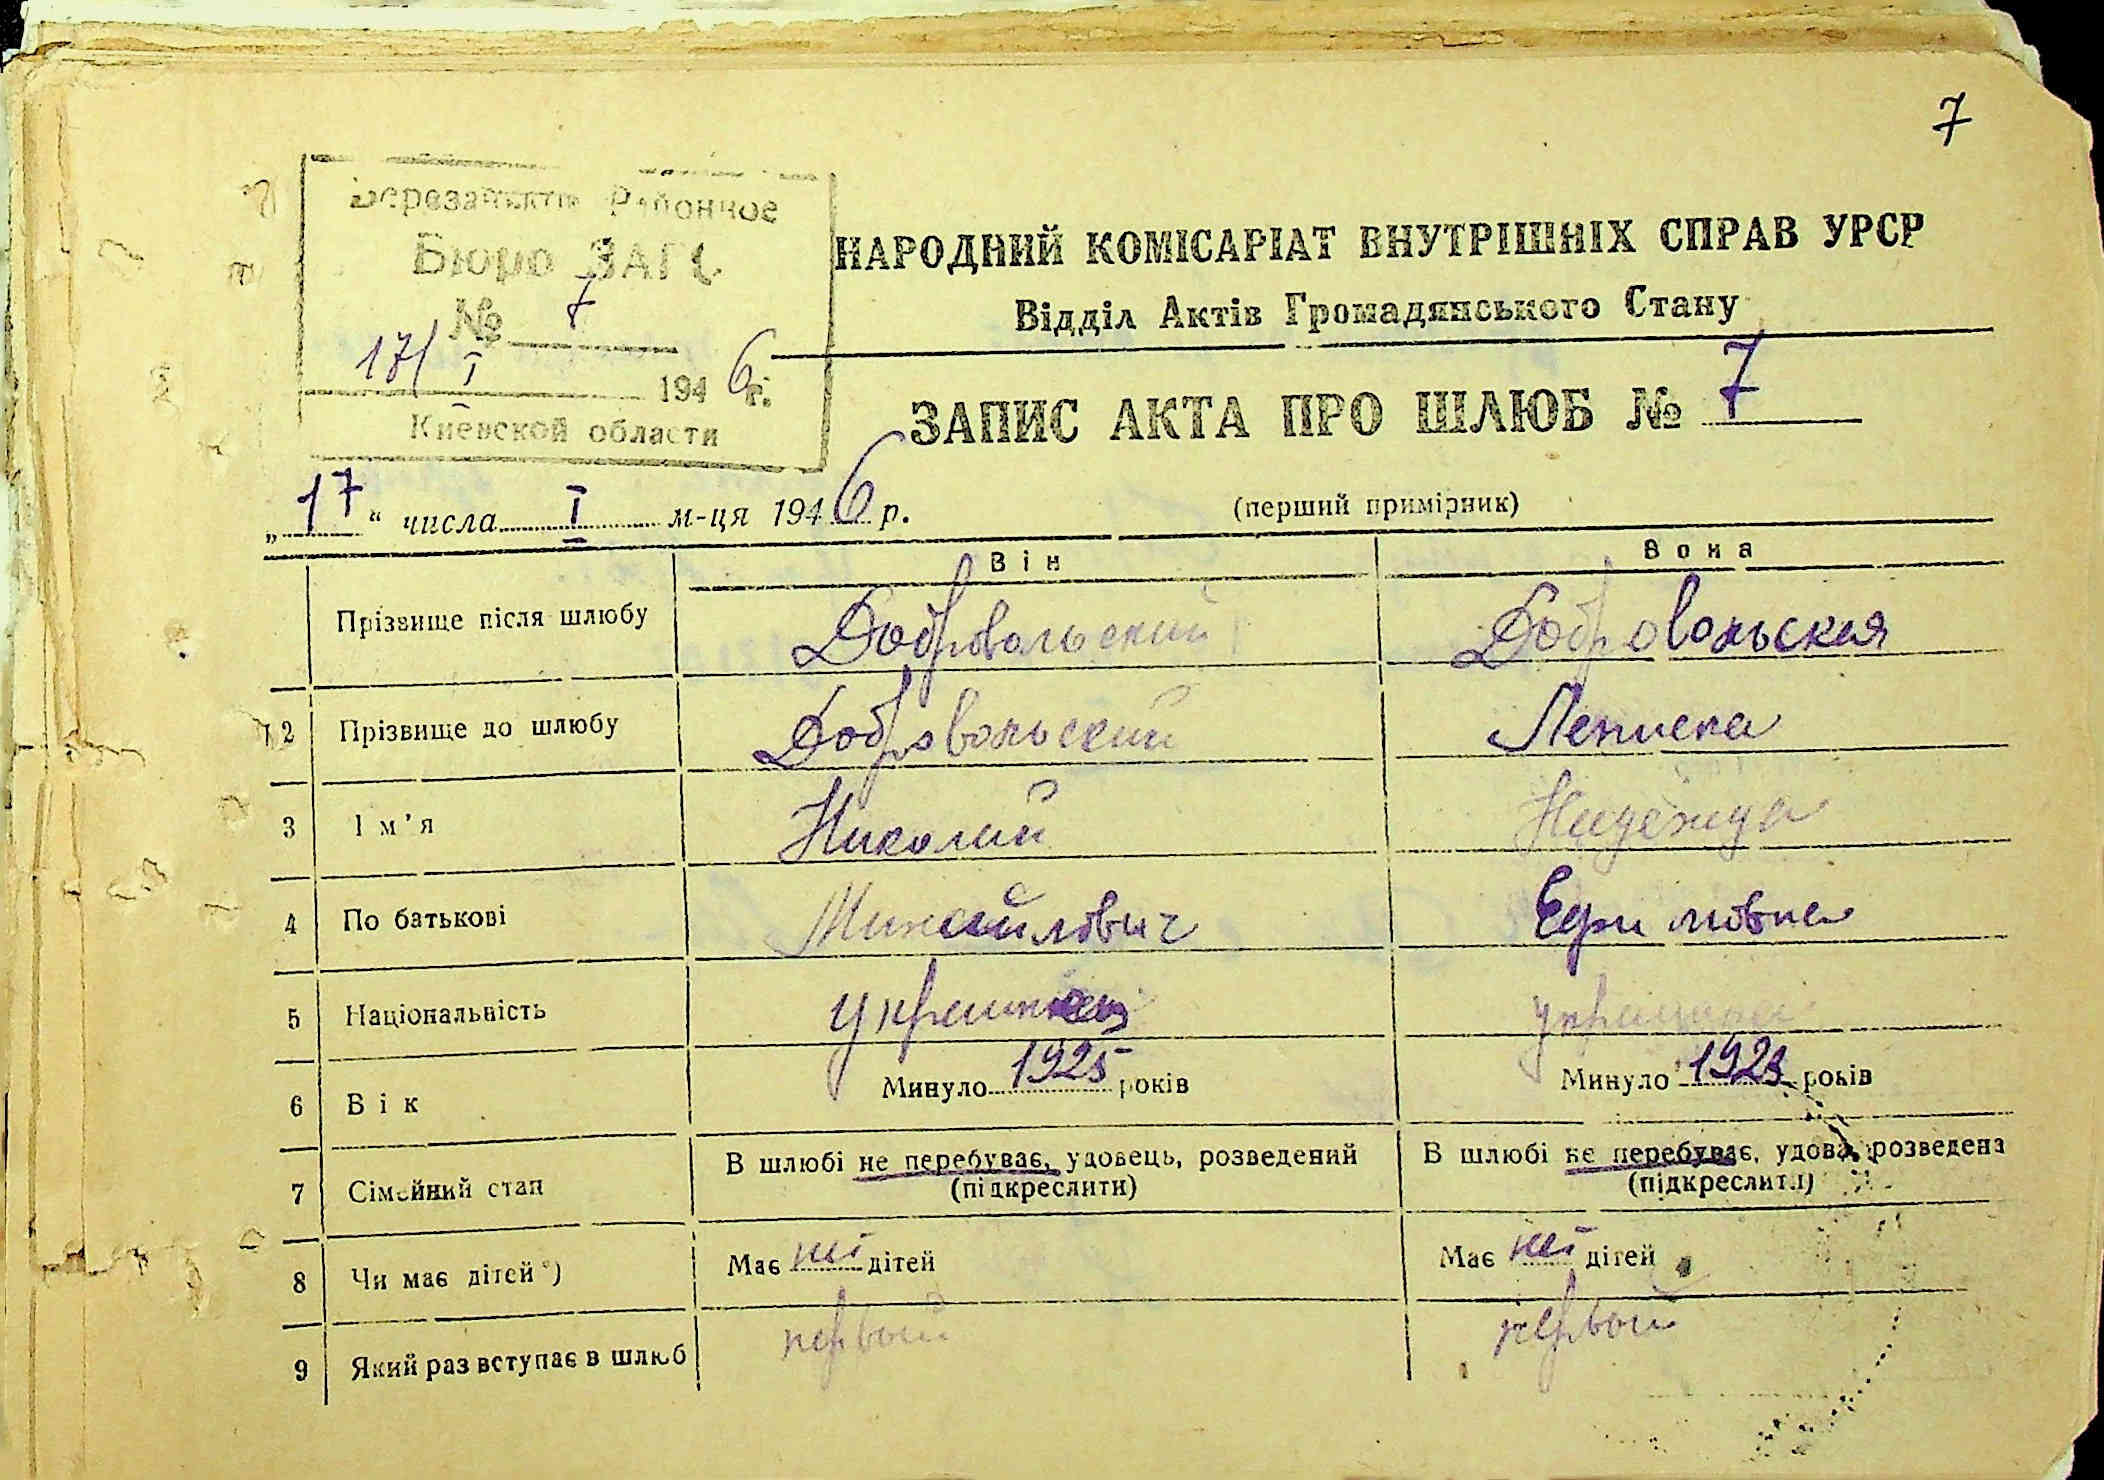 7
Березанское Районное
Бюро ЗАГС
№ 7
17/I 1946 г.
Киевской области
НАРОДНИЙ КОМІСАРІАТ ВНУТРІШНІХ СПРАВ УРСР
Відділ Актів Громадянського Стану
ЗАПИС АКТА ПРО ШЛЮБ № 7
„17“ числа I м-ця 1946 р. (перший примірник)
Він Вона
Прізвище після шлюбу Добровольский Добровольская
2 Прізвище до шлюбу Добровольский
3 Ім'я Николай Надежда
4 По батькові Михайлович Ефимовна
5 Національність украинец украинка
6 Вік Минуло 1925 років Минуло 1923 років
7 Сімейний стан В шлюбі не перебуває, удовець, розведений (підкреслити) В шлюбі не перебуває, удова, розведена (підкреслити)
8 Чи має дітей*) Має ні дітей Має ні дітей
9 Який раз вступає в шлюб первый первый